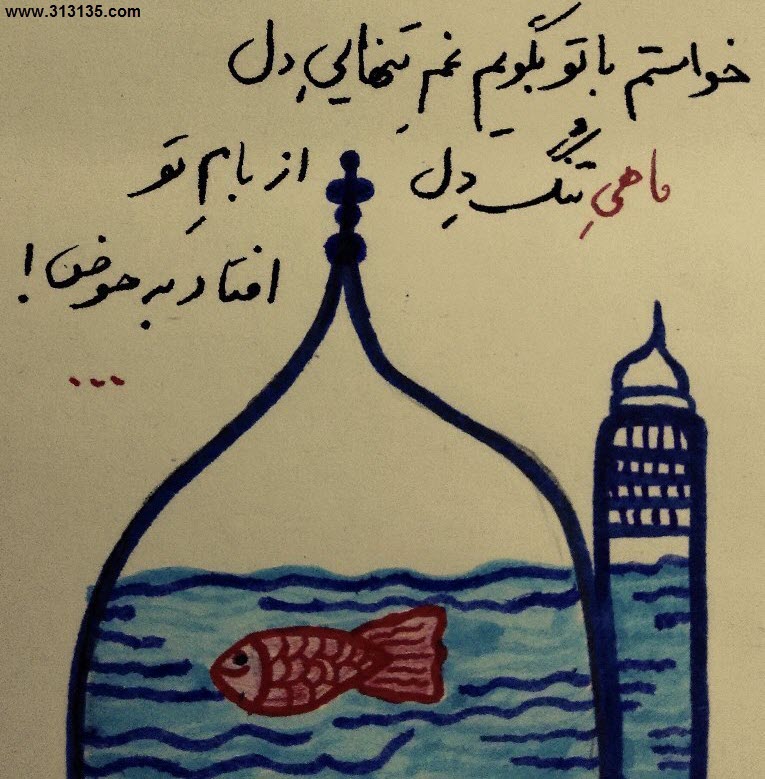 www.313135.com
خواستم با تو بگویم غمِ تنهاییِ دل
ماهیِ تُنگِ دِل از بامِ تو
افتاد به حوض!
...